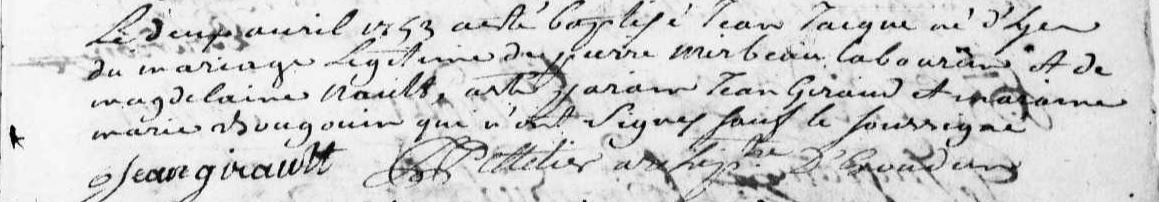 Le deux avril 1753 a esté baptisé Jean Jacque né d'hyer
du mariage Legitime de pierre mirbeau laboureur et de
magdelaine Nault, a esté parain Jean Giraud et maraine
marie Bougouin qui n'ont Signez sauf le soussigné
Jean girault Pelletier